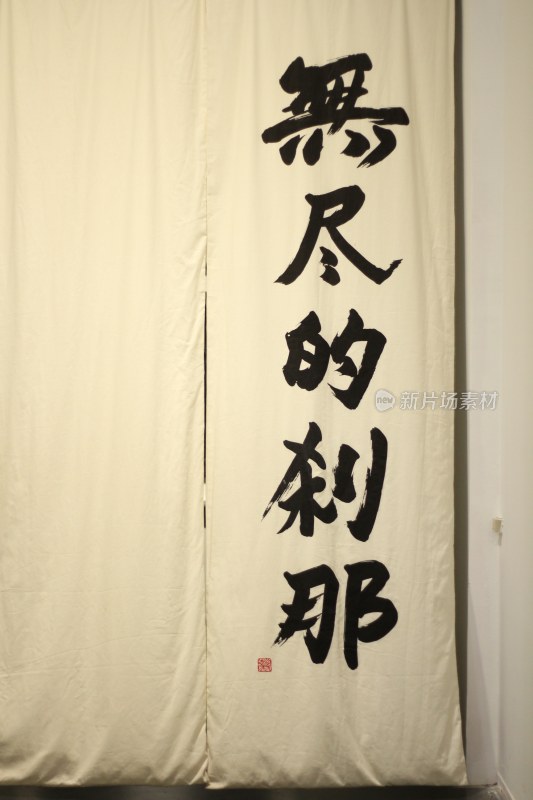 無尽的刹那
new 新片场素材